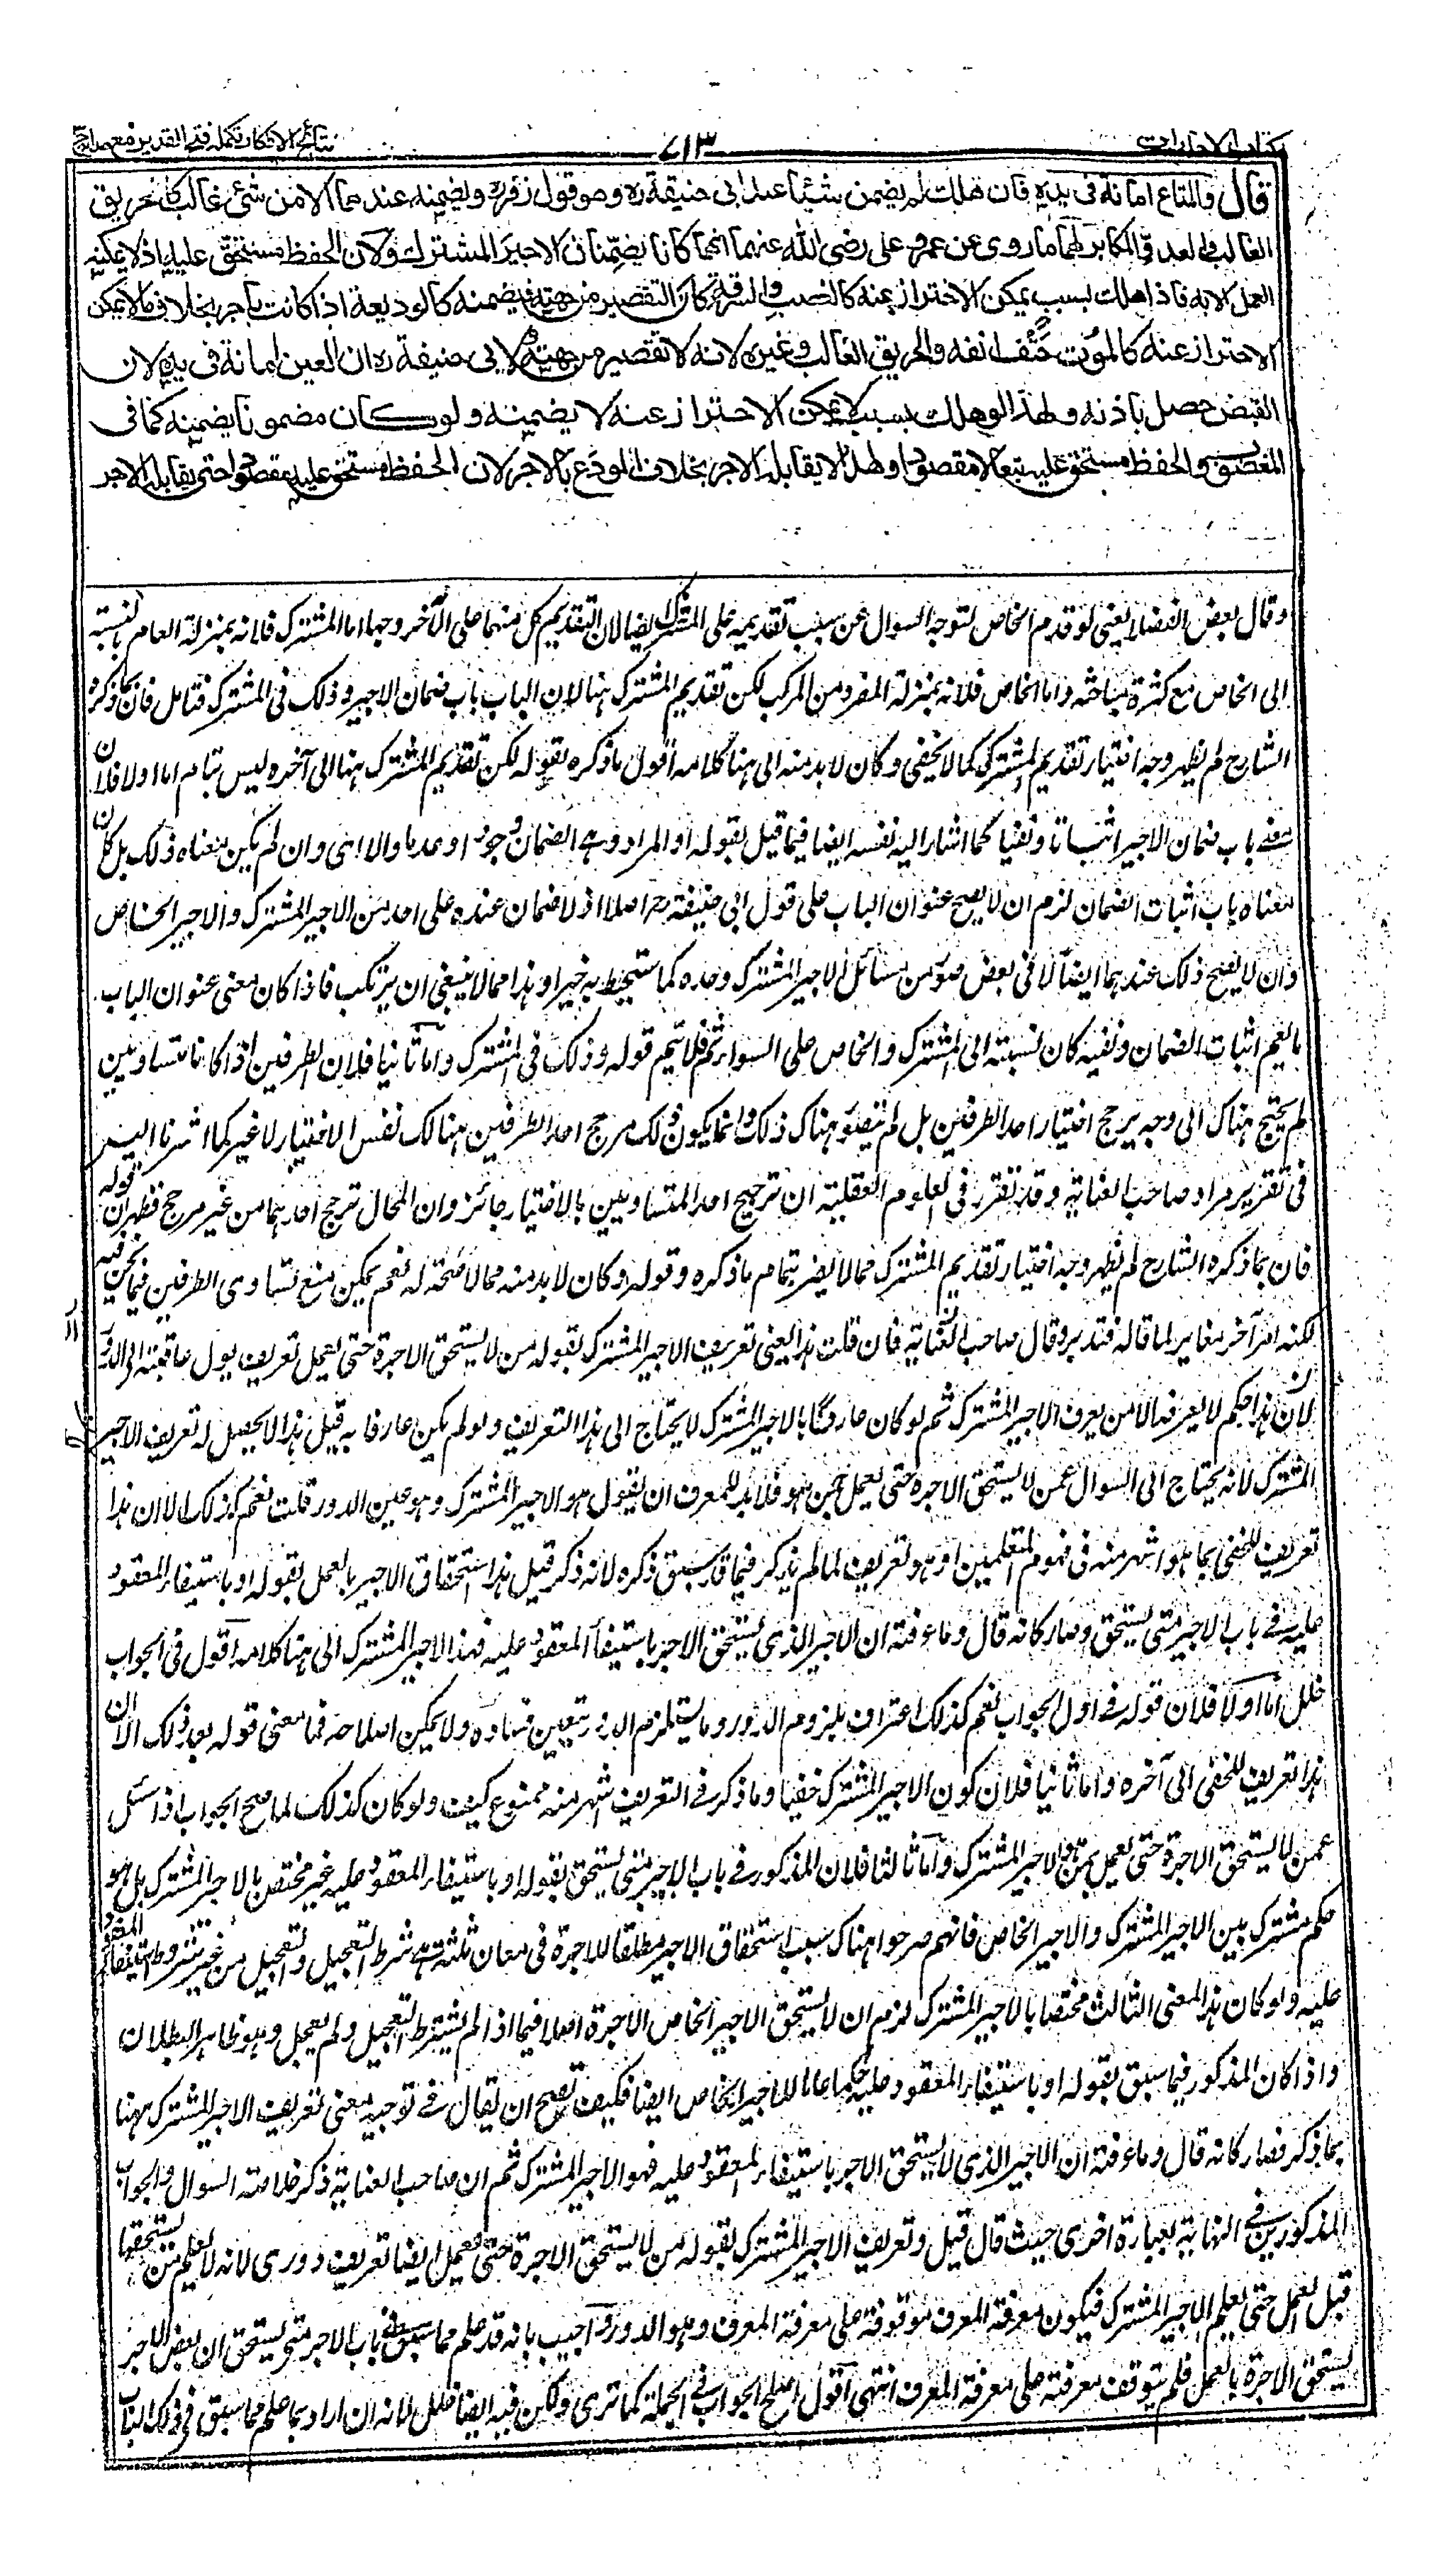 كتاب الاجارات
٧١٣
نتائج الافكار تكمله فتح القدير مع هدايه ج
قال والمتاع امانة فى يده فان هلك لم يضمن شيئا عند ابى حنيفة ره وهو قول زفر ره ويضمنه عندهما الا من شئ غالب كالحريق
الغالب والعدو المكابر لهما ما روى عن عمر و على رضى الله عنهما انهما كانا يضمّنان الاجيرَ المشترك ولان الحفظ مستحق عليه اذ لا يمكنه
العمل الا به فاذا هلك بسبب يمكن الاحتراز عنه كالغصب والسرقة كان التقصير من جهته فيضمنه كالوديعة اذا كانت باجر بخلاف ما لا يمكن
الاحتراز عنه كالموت حَتْف انفه والحريق الغالب وغيره لانه لا تقصير من جهته ولابى حنيفة ره ان العين امانة فى يده لان
القبض حصل باذنه ولهذا لو هلك بسبب لا يمكن الاحتراز عنه لا يضمنه ولو كان مضمونا يضمنه كما فى
المغصوب والحفظ مستحق عليه تبعا لا مقصودا ولهذا لا يقابله الاجر بخلاف المودَع بالاجر لان الحفظ مستحق عليه مقصودا حتى يقابله الاجر
وقال بعض الفضلاء يعنى لو قدم الخاص لتوجه السوال عن سبب تقديمه على المشترك ايضا لان لتقديم كل منهما على الآخر وجها اما المشترك فلانه بمنزلة العام بالنسبة
الى الخاص مع كثرة مباحثه واما الخاص فلانه بمنزلة المفرد من المركب لكن تقديم المشترك ههنا لان الباب باب ضمان الاجير وذلك فى المشترك فتامل فان بما ذكره
الشارح لم يظهر وجه اختيار تقديم المشترك كما لا يخفى وكان لا بد منه الى هنا كلامه اقول ما ذكره بقوله لكن تقديم المشترك ههنا الى آخره ليس بتام اما اولا فلان
معنى باب ضمان الاجير اثباتا ونفيا كما اشار اليه نفسه ايضا فيما قيل بقوله او المراد وهى الضمان وجودا وعدما والا اى وان لم يكن معناه ذلك بل كان
معناه باب اثبات الضمان لزم ان لا يصح عنوان الباب على قول ابى حنيفة رح اصلا اذ لا ضمان عنده على احد من الاجير المشترك والاجير الخاص
وان لا يصح ذلك عندهما ايضا الا فى بعض صور من مسائل الاجير المشترك وحده كما ستحيط به خبرا وهذا مما لا ينبغى ان يرتكب فاذا كان معنى عنوان الباب
ما لعم اثبات الضمان ونفيه كان نسبته الى المشترك والخاص على السواء ثم فلا يتم قوله وذلك فى المشترك واما ثانيا فلان الطرفين اذا كانا متساويين
لم يحتج هناك الى وجه يرجح اختيار احد الطرفين بل لم يتصور هناك ذلك وانما يكون ذلك مرجح احد الطرفين هنالك نفس الاختيار لا غير كما اشرنا اليه
فى تقرير مراد صاحب العناية وقد تقرر فى العلوم العقلية ان ترجيح احد المتساويين بالاختيار جائز وان المحال ترجح احدهما من غير مرجح فظهر ان قوله
فان بما ذكره الشارح لم يظهر وجه اختيار تقديم المشترك مما لا يضر بتمام ما ذكره وقوله وكان لا بد منه مما لا صحة له نعم يمكن منع تساوى الطرفين فيما نحن فيه
لكنه امر آخر مغاير لما قاله فتدبر وقال صاحب العناية فان قلت هذا يعنى تعريف الاجير المشترك بقوله من لا يستحق الاجرة حتى يعمل تعريف يول عاقبته الى الدور
لان هذا حكم لا يعرفه الا من يعرف الاجير المشترك ثم لو كان عارفا بالاجير المشترك لا يحتاج الى هذا التعريف ولو لم يكن عارفا به قبل هذا لا يحصل له تعريف الاجير
المشترك لانه يحتاج الى السوال عمن لا يستحق الاجرة حتى يعمل بمن هو فلا بد للمعرف ان يقول هو الاجير المشترك وهو عين الدور قلت نعم كذلك الا ان هذا
تعريف للخفى بما هو اشهر منه فى فهوم المتعلمين او هو تعريف لما لم يذكر فيما قد سبق ذكره لانه ذكر قبل هذا استحقاق الاجير بالعمل بقوله او باستيفاء المعقود
عليه فى باب الاجير متى يستحق وصار كانه قال وما عرفته ان الاجير الذى يستحق الاجر باستيفاء المعقود عليه فهذا الاجير المشترك الى هنا كلامه اقول فى الجواب
خلل اما اولا فلان قوله فى اول الجواب نعم كذلك اعتراف بلزوم الدور وما يستلزم الدور يتعين فساده ولا يمكن اصلاحه فما معنى قوله بعد ذلك الا ان
هذا تعريف للخفى الى آخره واما ثانيا فلان كون الاجير المشترك خفيا وما ذكر فى التعريف اشهر منه ممنوع كيف ولو كان كذلك لما صح الجواب اذا سئل
عمن لا يستحق الاجرة حتى يعمل بمن هو الاجير المشترك واما ثالثا فلان المذكور فى باب الاجير متى يستحق بقوله او باستيفاء المعقود عليه غير مختص بالاجير المشترك بل هو
حكم مشترك بين الاجير المشترك والاجير الخاص فانهم صرحوا هناك سبب استحقاق الاجير مطلقا للاجرة فى معان ثلثة هى شرط التعجيل والتعجيل من غير شرط واستيفاء المعقود
عليه ولو كان هذا المعنى الثالث مختصا بالاجير المشترك لزم ان لا يستحق الاجير الخاص الاجرة اصلا فيما اذا لم يشترط التعجيل ولم يعجل وهو ظاهر البطلان
واذا كان المذكور فيما سبق بقوله او باستيفاء المعقود عليه حكما عاما للاجير الخاص ايضا فكيف يصح ان يقال فى توجيه معنى تعريف الاجير المشترك ههنا
بما ذكر فصار كانه قال وما عرفته ان الاجير الذى لا يستحق الاجر باستيفاء المعقود عليه فهو الاجير المشترك ثم ان صاحب العناية ذكر خلاصة السوال والجواب
المذكورين فى النهاية بعبارة اخرى حيث قال قيل وتعريف الاجير المشترك بقوله من لا يستحق الاجرة حتى يعمل ايضا تعريف دورى لانه لا يعلم من يستحقها
قبل العمل حتى يعلم الاجير المشترك فيكون معرفة المعرف موقوفة على معرفة المعرف وهو الدور واجيب بانه قد علم مما سبق فى باب الاجر متى يستحق ان بعض الاجير
يستحق الاجرة بالعمل فلم يتوقف معرفته على معرفة المعرف انتهى اقول اصلح الجواب فى الجملة كما ترى ولكن فيه ايضا خلل لانه ان اراد بما علم مما سبق فى ذلك الباب